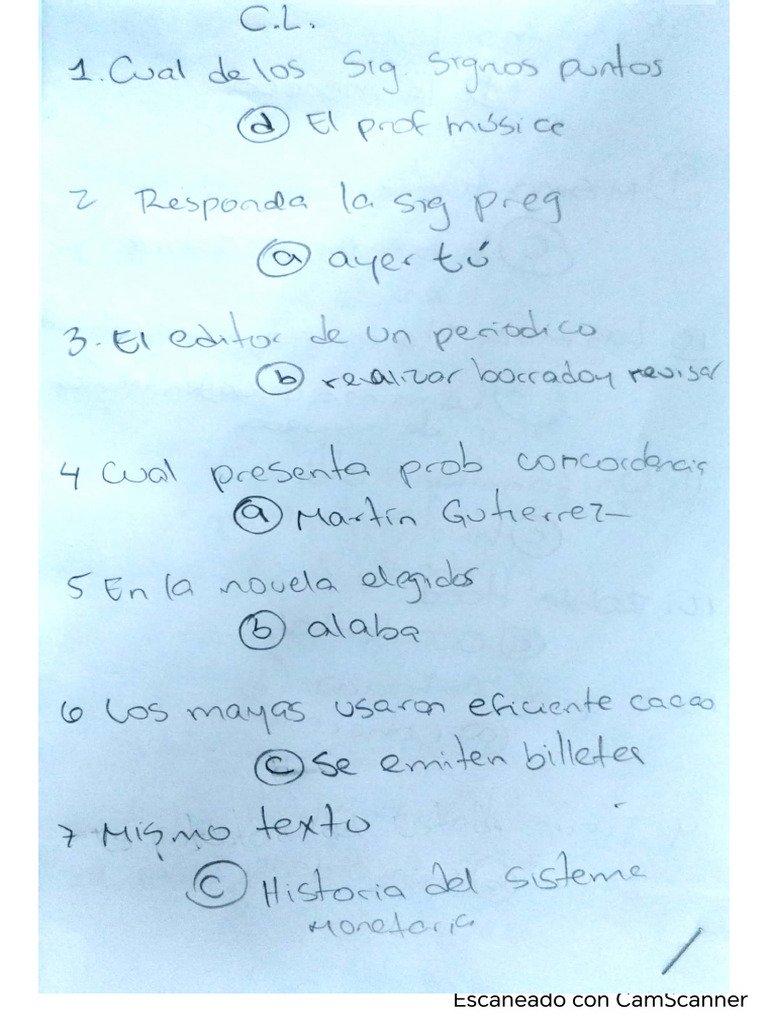 C.L.
1. Cual de los Sig. Signos puntos
d El prof músice
2 Responda la sig preg
a ayer tú
3. El editor de un periodico
b realizar borrador y revisar
4 Cual presenta prob concordancia
a Martín Gutierrez
5 En la novela elegidos
b alaba
6 Los mayas usaron eficiente cacao
c Se emiten billetes
7 Mismo texto
c Historia del sisteme
Monetario
Escaneado con CamScanner